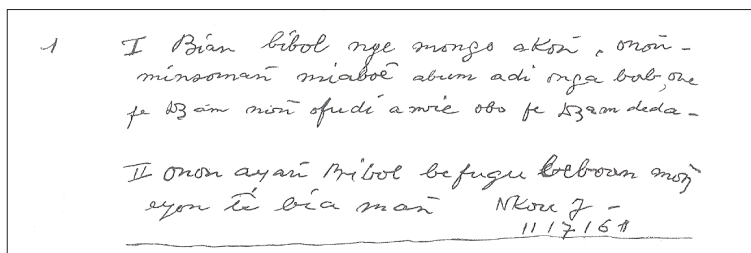 1 I Bian bibol nge mongo akon̄, onon̄-
minsoman̄ miaboé abum adi onga bob, one
fe dzam nin̄ ofudi a mvié obo fe dzam deda-
II onon ayan̄ Bibol befugu beboan mon̄
eyon té bia man̄ Nkou J-
11/7/61